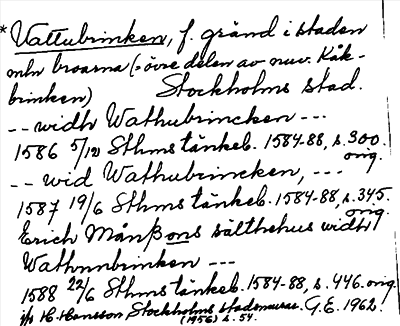 * Vattubrinken, f. gränd i staden
mln broarna (= övre delen av nuv. Kåk-
brinken) Stockholms stad.
-- widh Wathubrincken ---
1586 5/12 Sthms tänkeb. 1584-88, s. 300.
orig.
-- wid Wathubrincken, ---
1587 19/6 Sthms tänkeb. 1584-88, s. 345.
orig.
Erich Månßons sälthehus widh
Wathnnbrinken ---
1588 22/6 Sthms tänkeb. 1584-88, s. 446. orig.
H. Hansson Stockholms stadsmurar. G.E. 1962.
(1956) s. 54.